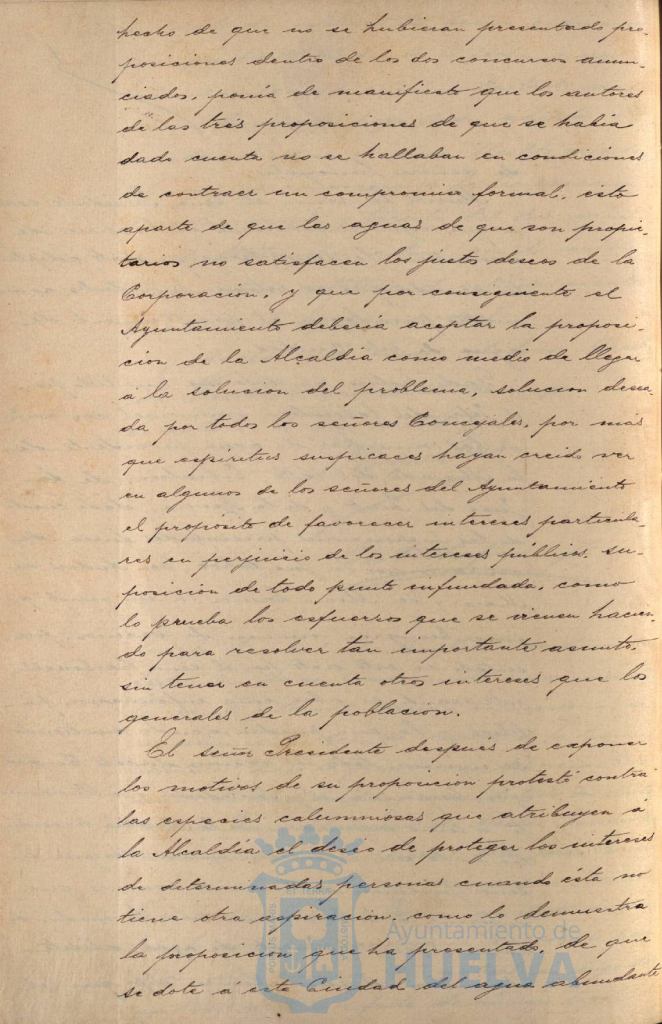 hecho de que no se hubieran presentado pro-
posiciones dentro de los dos concursos anun-
ciados, ponía de manifiesto que los autores
de las tres proposiciones de que se había
dado cuenta no se hallaban en condiciones
de contraer un compromiso formal, esto
aparte de que las aguas de que son propie-
tarios no satisfacen los justos deseos de la
Corporación, y que por consiguiente el
Ayuntamiento debería aceptar la proposi-
cion de la Alcaldía como medio de llegar
á la solucion del problema, solucion desea-
da por todos los señores Concejales, por más
que espíritus suspicaces hayan creido ver
en algunos de los señores del Ayuntamiento
el propósito de favorecer intereses particula-
res en perjuicio de los intereses públicos, su-
posición de todo punto infundada, como
lo prueba los esfuerzos que se vienen hacien-
do para resolver tan importante asunto,
sin tener en cuenta otros intereses que los
generales de la población.
El señor Presidente después de exponer
los motivos de su proposicion protestó contra
las especies calumniosas que atribuyen á
la Alcaldía el deseo de proteger los intereses
de determinadas personas cuando ésta no
tiene otra aspiración, como lo demuestra
la proposicion que ha presentado, de que
se dote á esta Ciudad del agua abundante
Ayuntamiento de
HUELVA